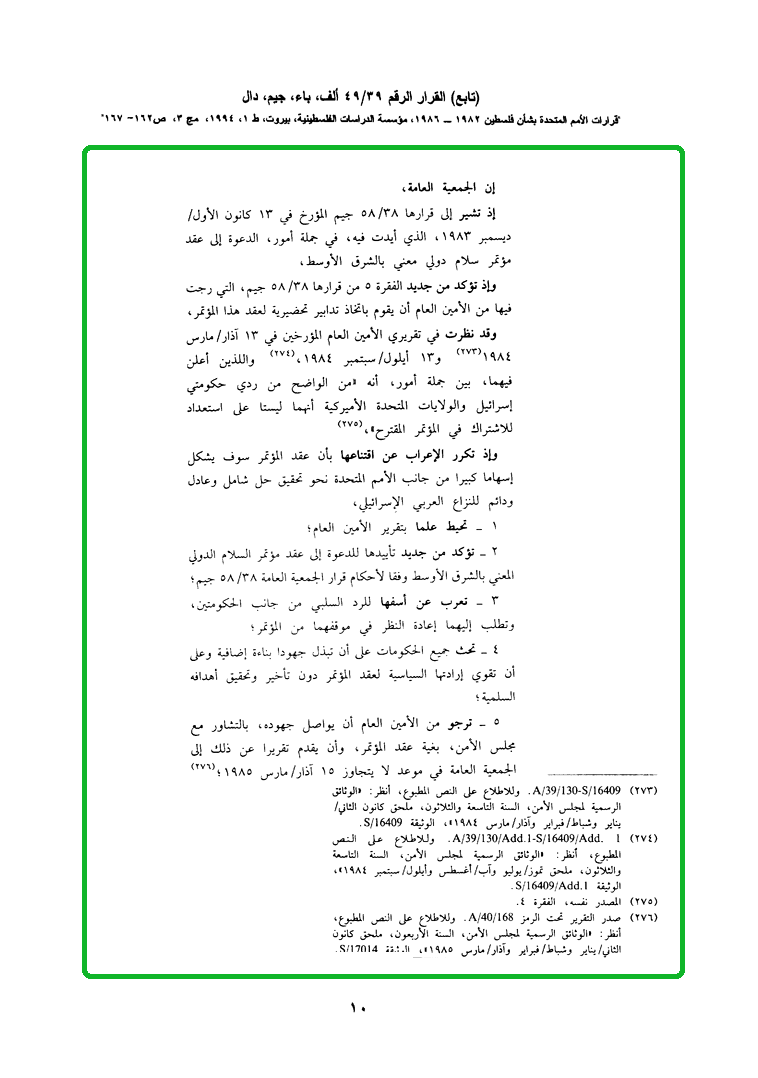 (تابع) القرار الرقم ٤٩/٣٩ ألف، باء، جيم، دال
"قرارات الأمم المتحدة بشأن فلسطين ١٩٨٢ ــ ١٩٨٦، مؤسسة الدراسات الفلسطينية، بيروت، ط ١، ١٩٩٤، مج ٣، ص١٦٢- ١٦٧"
إن الجمعية العامة،
إذ تشير إلى قرارها ٥٨/٣٨ جيم المؤرخ في ١٣ كانون الأول/
ديسمبر ١٩٨٣، الذي أيدت فيه، في جملة أمور، الدعوة إلى عقد
مؤتمر سلام دولي معني بالشرق الأوسط،
وإذ تؤكد من جديد الفقرة ٥ من قرارها ٥٨/٣٨ جيم، التي رجت
فيها من الأمين العام أن يقوم باتخاذ تدابير تحضيرية لعقد هذا المؤتمر،
وقد نظرت في تقريري الأمين العام المؤرخين في ١٣ آذار/مارس
١٩٨٤(٢٧٣) و١٣ أيلول/سبتمبر ١٩٨٤،(٢٧٤) واللذين أعلن
فيهما، بين جملة أمور، أنه «من الواضح من ردي حكومتي
إسرائيل والولايات المتحدة الأميركية أنهما ليستا على استعداد
للاشتراك في المؤتمر المقترح»،(٢٧٥)
وإذ تكرر الإعراب عن اقتناعها بأن عقد المؤتمر سوف يشكل
إسهاما كبيرا من جانب الأمم المتحدة نحو تحقيق حل شامل وعادل
ودائم للنزاع العربي الإسرائيلي،
١ ـ تحيط علما بتقرير الأمين العام؛
٢ ـ تؤكد من جديد تأييدها للدعوة إلى عقد مؤتمر السلام الدولي
المعني بالشرق الأوسط وفقا لأحكام قرار الجمعية العامة ٥٨/٣٨ جيم؛
٣ ـ تعرب عن أسفها للرد السلبي من جانب الحكومتين،
وتطلب إليهما إعادة النظر في موقفهما من المؤتمر؛
٤ ـ تحث جميع الحكومات على أن تبذل جهودا بناءة إضافية وعلى
أن تقوي إرادتها السياسية لعقد المؤتمر دون تأخير وتحقيق أهدافه
السلمية؛
٥ ـ ترجو من الأمين العام أن يواصل جهوده، بالتشاور مع
مجلس الأمن، بغية عقد المؤتمر، وأن يقدم تقريرا عن ذلك إلى
الجمعية العامة في موعد لا يتجاوز ١٥ آذار/مارس ١٩٨٥؛(٢٧٦)
(٢٧٣) A/39/130-S/16409. وللاطلاع على النص المطبوع، أنظر: «الوثائق
الرسمية لمجلس الأمن، السنة التاسعة والثلاثون، ملحق كانون الثاني/
يناير وشباط/فبراير وآذار/مارس ١٩٨٤»، الوثيقة S/16409.
(٢٧٤) A/39/130/Add.1-S/16409/Add. 1. وللاطلاع على النص
المطبوع، أنظر: «الوثائق الرسمية لمجلس الأمن، السنة التاسعة
والثلاثون، ملحق تموز/يوليو وآب/أغسطس وأيلول/سبتمبر ١٩٨٤»،
الوثيقة S/16409/Add.1.
(٢٧٥) المصدر نفسه، الفقرة ٤.
(٢٧٦) صدر التقرير تحت الرمز A/40/168. وللاطلاع على النص المطبوع،
أنظر: «الوثائق الرسمية لمجلس الأمن، السنة الأربعون، ملحق كانون
الثاني/يناير وشباط/فبراير وآذار/مارس ١٩٨٥»، الوثيقة S/17014.
١٠